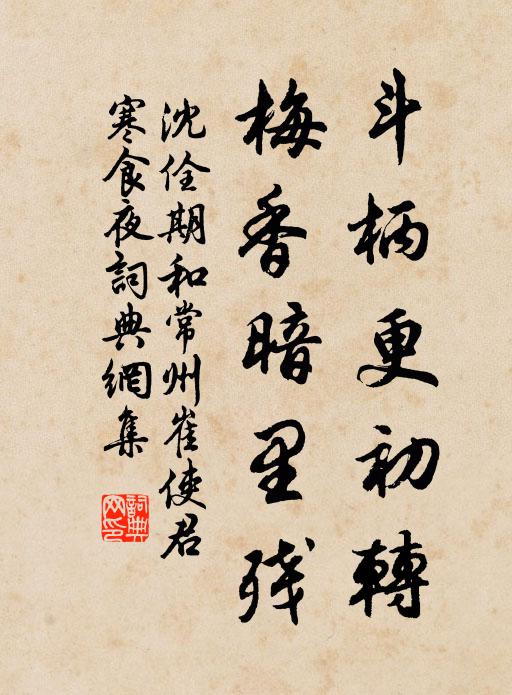 斗柄更初轉
梅香暗里残
沈佺期和常州崔使君
寒食夜詞典網集
詞典网印